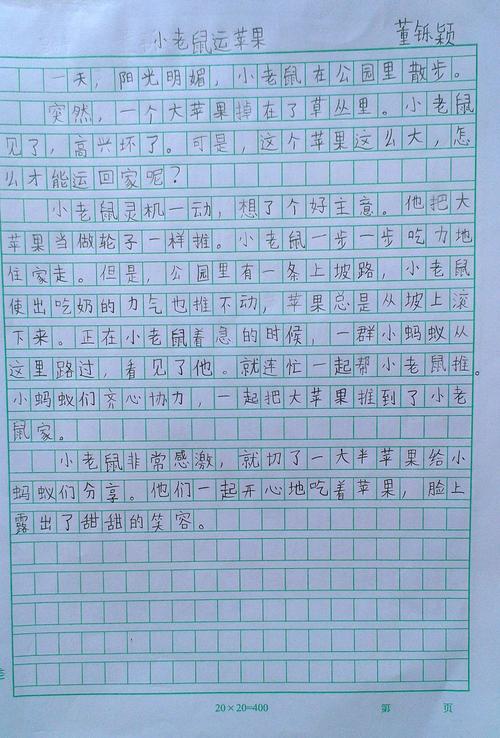 小老鼠运苹果 董铄颖
一天，阳光明媚，小老鼠在公园里散步。
突然，一个大苹果掉在了草丛里。小老鼠
见了，高兴坏了。可是，这个苹果这么大，怎
么才能运回家呢？
小老鼠灵机一动，想了个好主意。他把大
苹果当做轮子一样推。小老鼠一步一步吃力地
住家走。但是，公园里有一条上坡路，小老鼠
使出吃奶的力气也推不动，苹果总是从坡上滚
下来。正在小老鼠着急的时候，一群小蚂蚁从
这里路过，看见了他。就连忙一起帮小老鼠推。
小蚂蚁们齐心协力，一起把大苹果推到了小老
鼠家。
小老鼠非常感激，就切了一大半苹果给小
蚂蚁们分享。他们一起开心地吃着苹果，脸上
露出了甜甜的笑容。
20×20=400 第 页